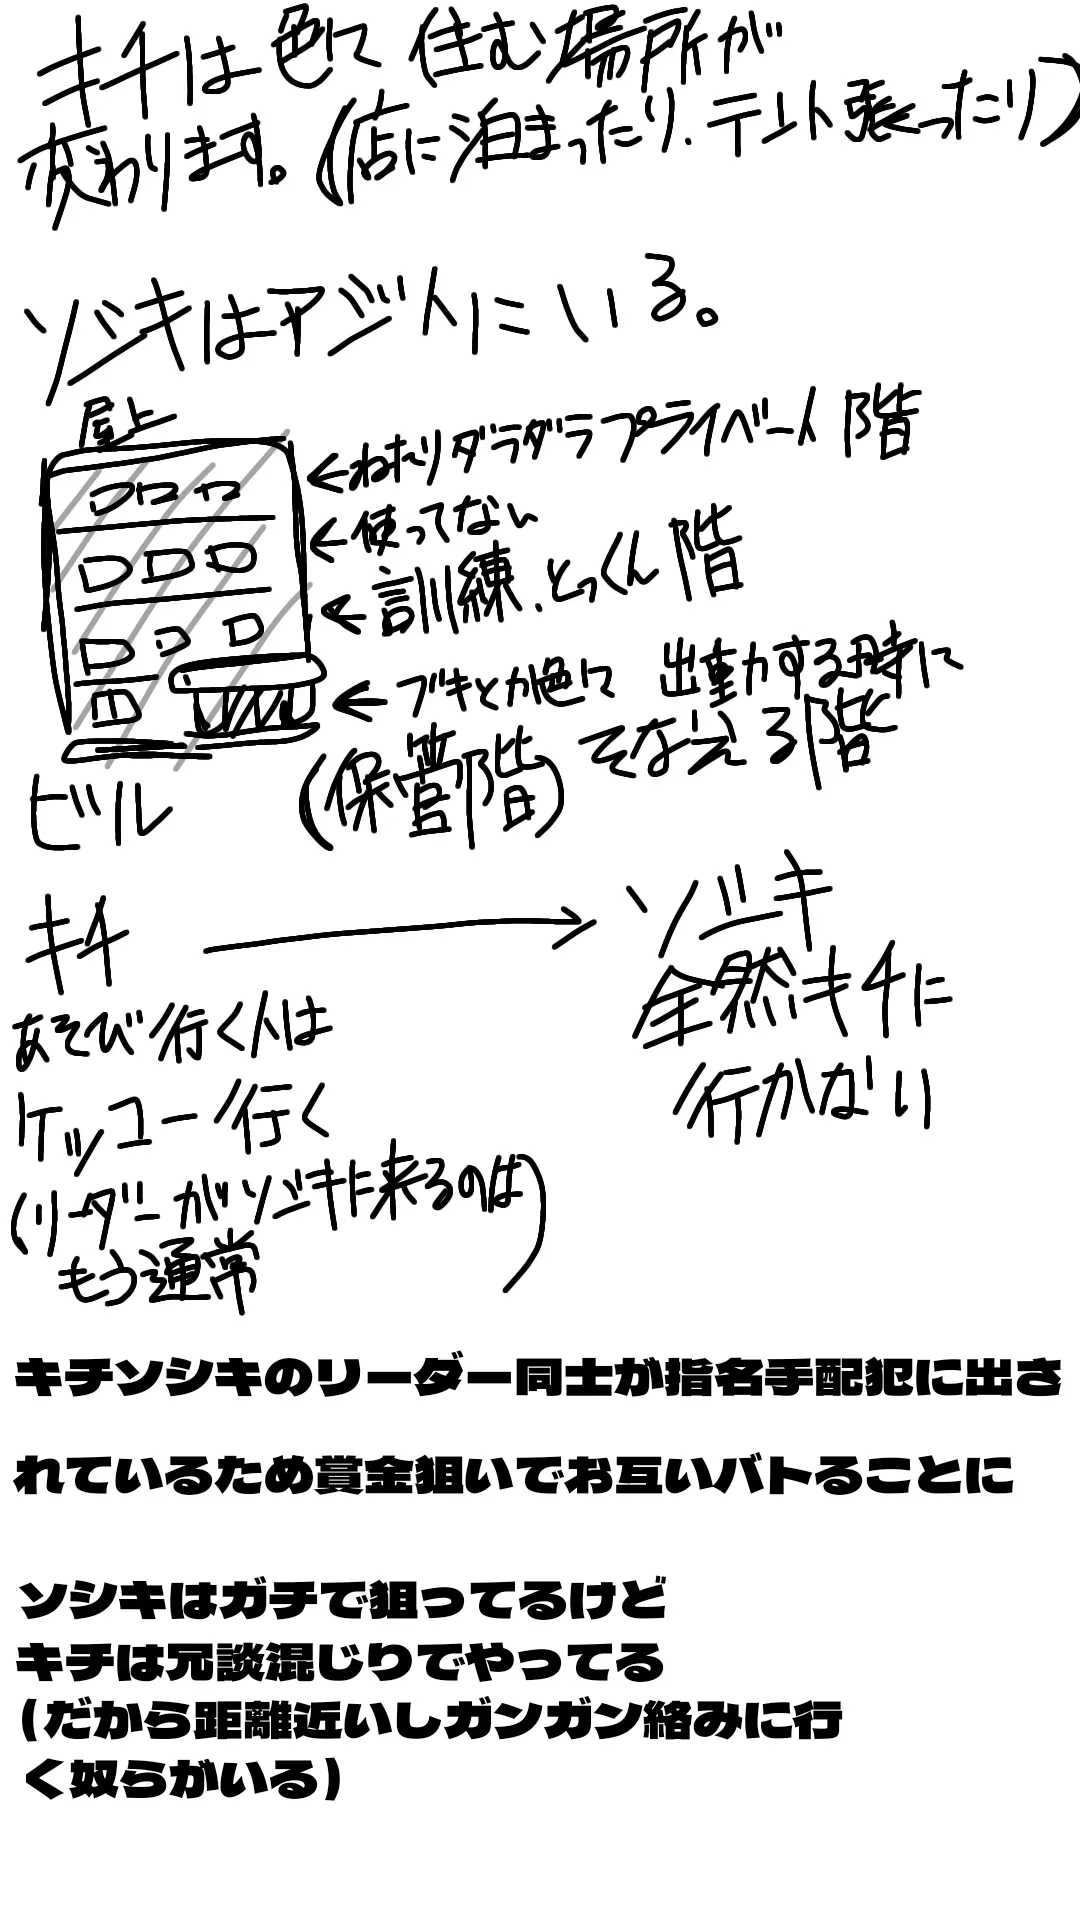 キチは色んて住む場所が
変わります。(店に泊まったり、テント張ったり)
ソシキはアジトにいる。
屋上
←ねたりダラダラプライベート階
←使ってない
←訓練、とっくん階
←ブキとか色んて 出動する時に
(保管階)そなえる階
ビル
キチ → ソシキ
あそび行く人は
ケッコー行く
(リーダーがソシキに来るのは
もう通常)
全然キチに
行かない
キチソシキのリーダー同士が指名手配犯に出さ
れているため賞金狙いでお互いバトることに
ソシキはガチで狙ってるけど
キチは冗談混じりでやってる
(だから距離近いしガンガン絡みに行
く奴らがいる)